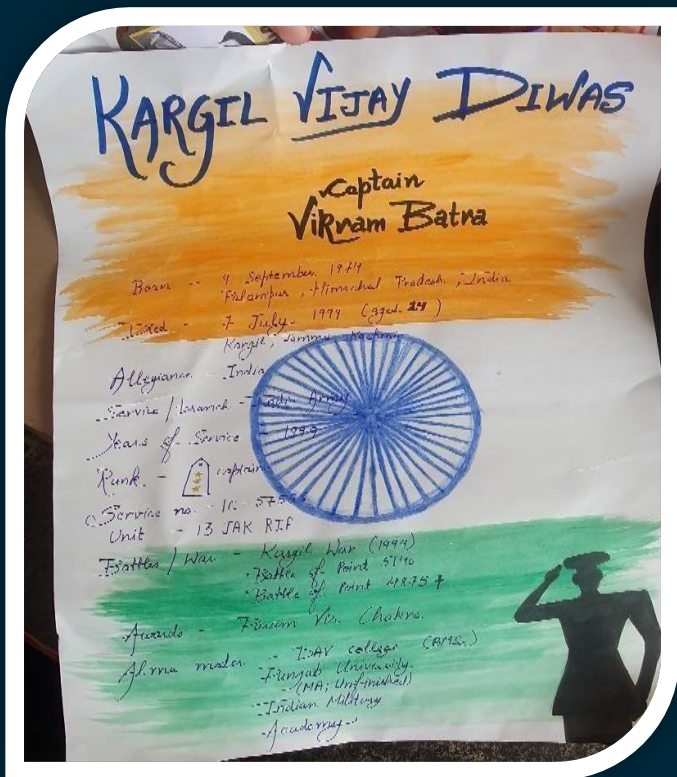 KARGIL VIJAY DIWAS
Captain
Vikram Batra
Born -- 9 September 1974
Palampur, Himachal Pradesh, India
Died - 7 July 1999 (aged 24)
Kargil, Jammu Kashmir
Allegiance - India
Service / branch - India Army
Years of Service - 1999
Rank - captain
Service no. - IC 57556
Unit - 13 JAK RIF
Battles / War - Kargil War (1999)
• Battle of Point 5140
• Battle of Point 4875
Awards - Param Vir Chakra
Alma mater - DAV college
- Punjab University
(MA; Unfinished)
- Indian Military
- Academy -